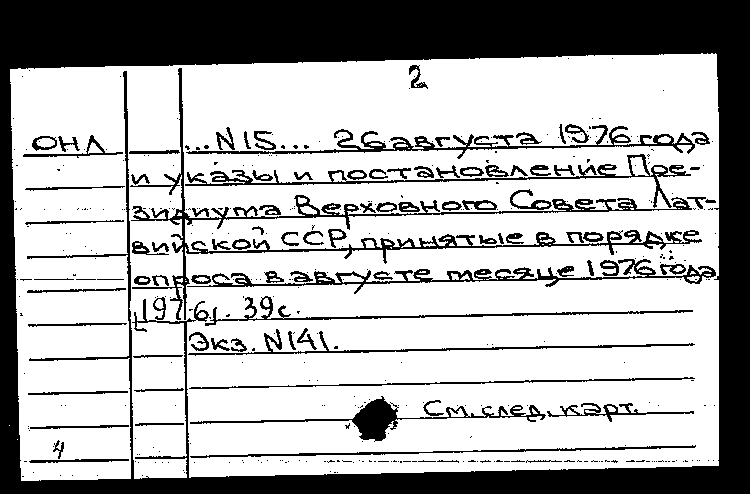 2
ОНЛ ...N15... 26 августа 1976 года
и указы и постановление Пре-
зидиума Верховного Совета Лат-
вийской ССР, принятые в порядке
опроса в августе месяце 1976 года
[1976]. 39с.
Экз. N141.
См. след. карт.
4